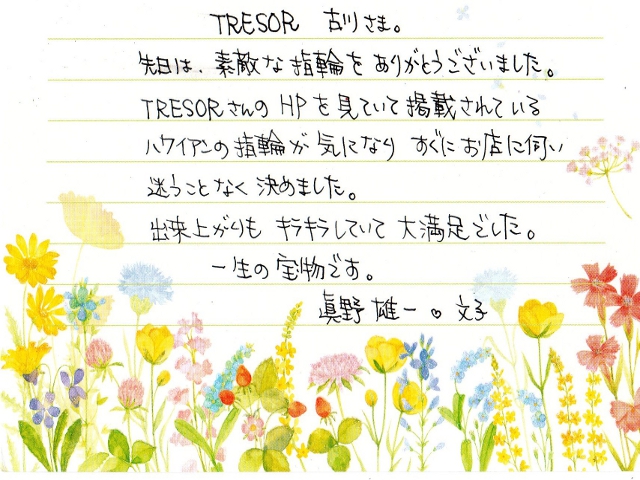 TRESOR 古川さま。
先日は、素敵な指輪をありがとうございました。
TRESORさんのHPを見ていて掲載されている
ハワイアンの指輪が気になり すぐにお店に伺い
迷うことなく決めました。
出来上がりもキラキラしていて大満足でした。
一生の宝物です。
眞野 雄一 ♡ 文子